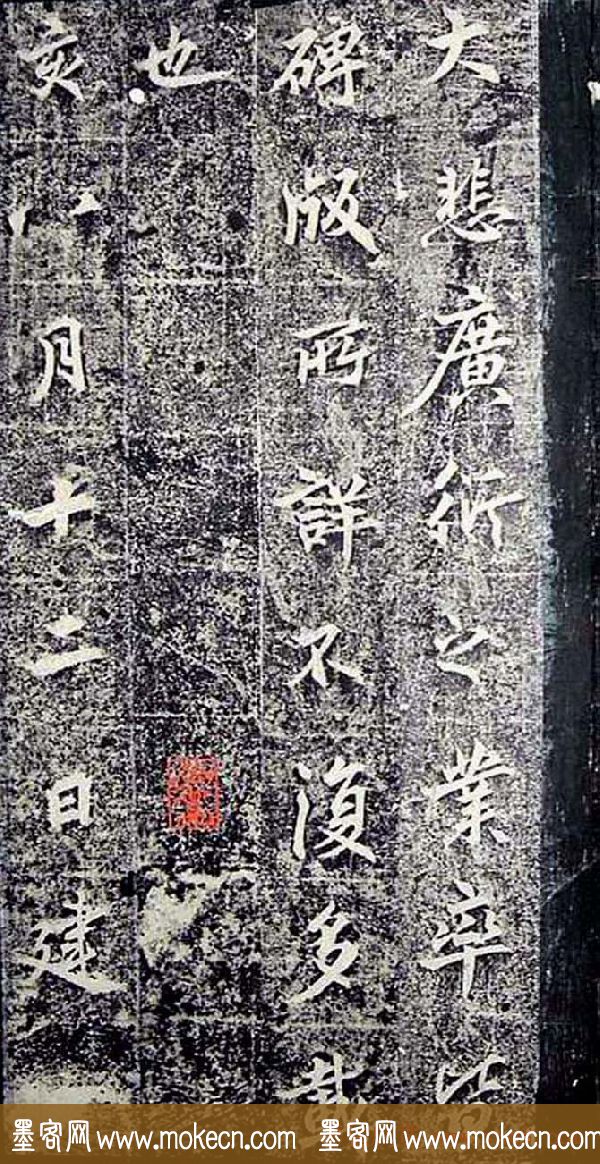 大悲廣衍之業率皆
碑版所詳不復多載
也
亥八月十二日建
墨客网 www.mokecn.com 墨客网 www.mokecn.com